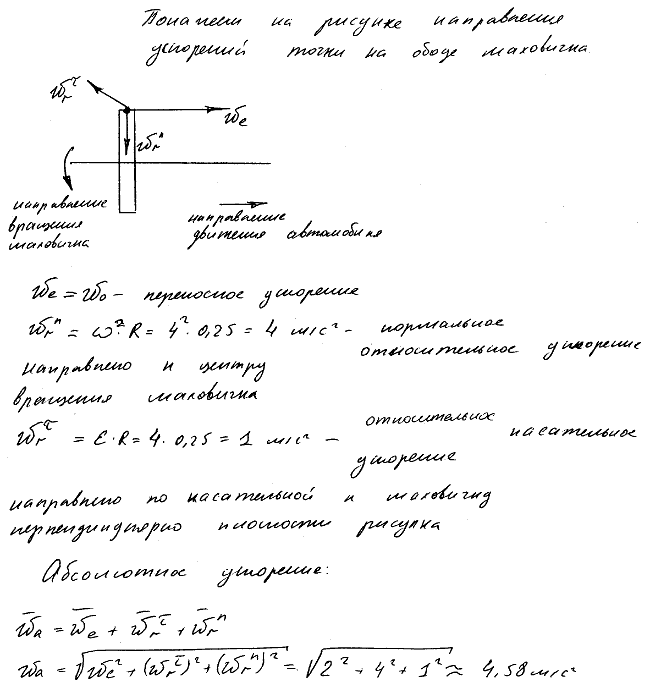 Покажем на рисунке направления
ускорений точки на ободе маховичка.
w_r^τ
w_e
w_r^n
направление
вращения
маховичка
направление
движения автомобиля
w_e = w_0 – переносное ускорение
w_r^n = ω²·R = 4²·0,25 = 4 м/с² – нормальное
относительное ускорение
направлено к центру
вращения маховичка
w_r^τ = ε·R = 4·0,25 = 1 м/с² – относительное касательное
ускорение
направлено по касательной к маховику
перпендикулярно плоскости рисунка
Абсолютное ускорение:
w̄_a = w̄_e + w̄_r^τ + w̄_r^n
w_a = √(w_e² + (w_r^τ)² + (w_r^n)²) = √(2² + 4² + 1²) ≈ 4,58 м/с²